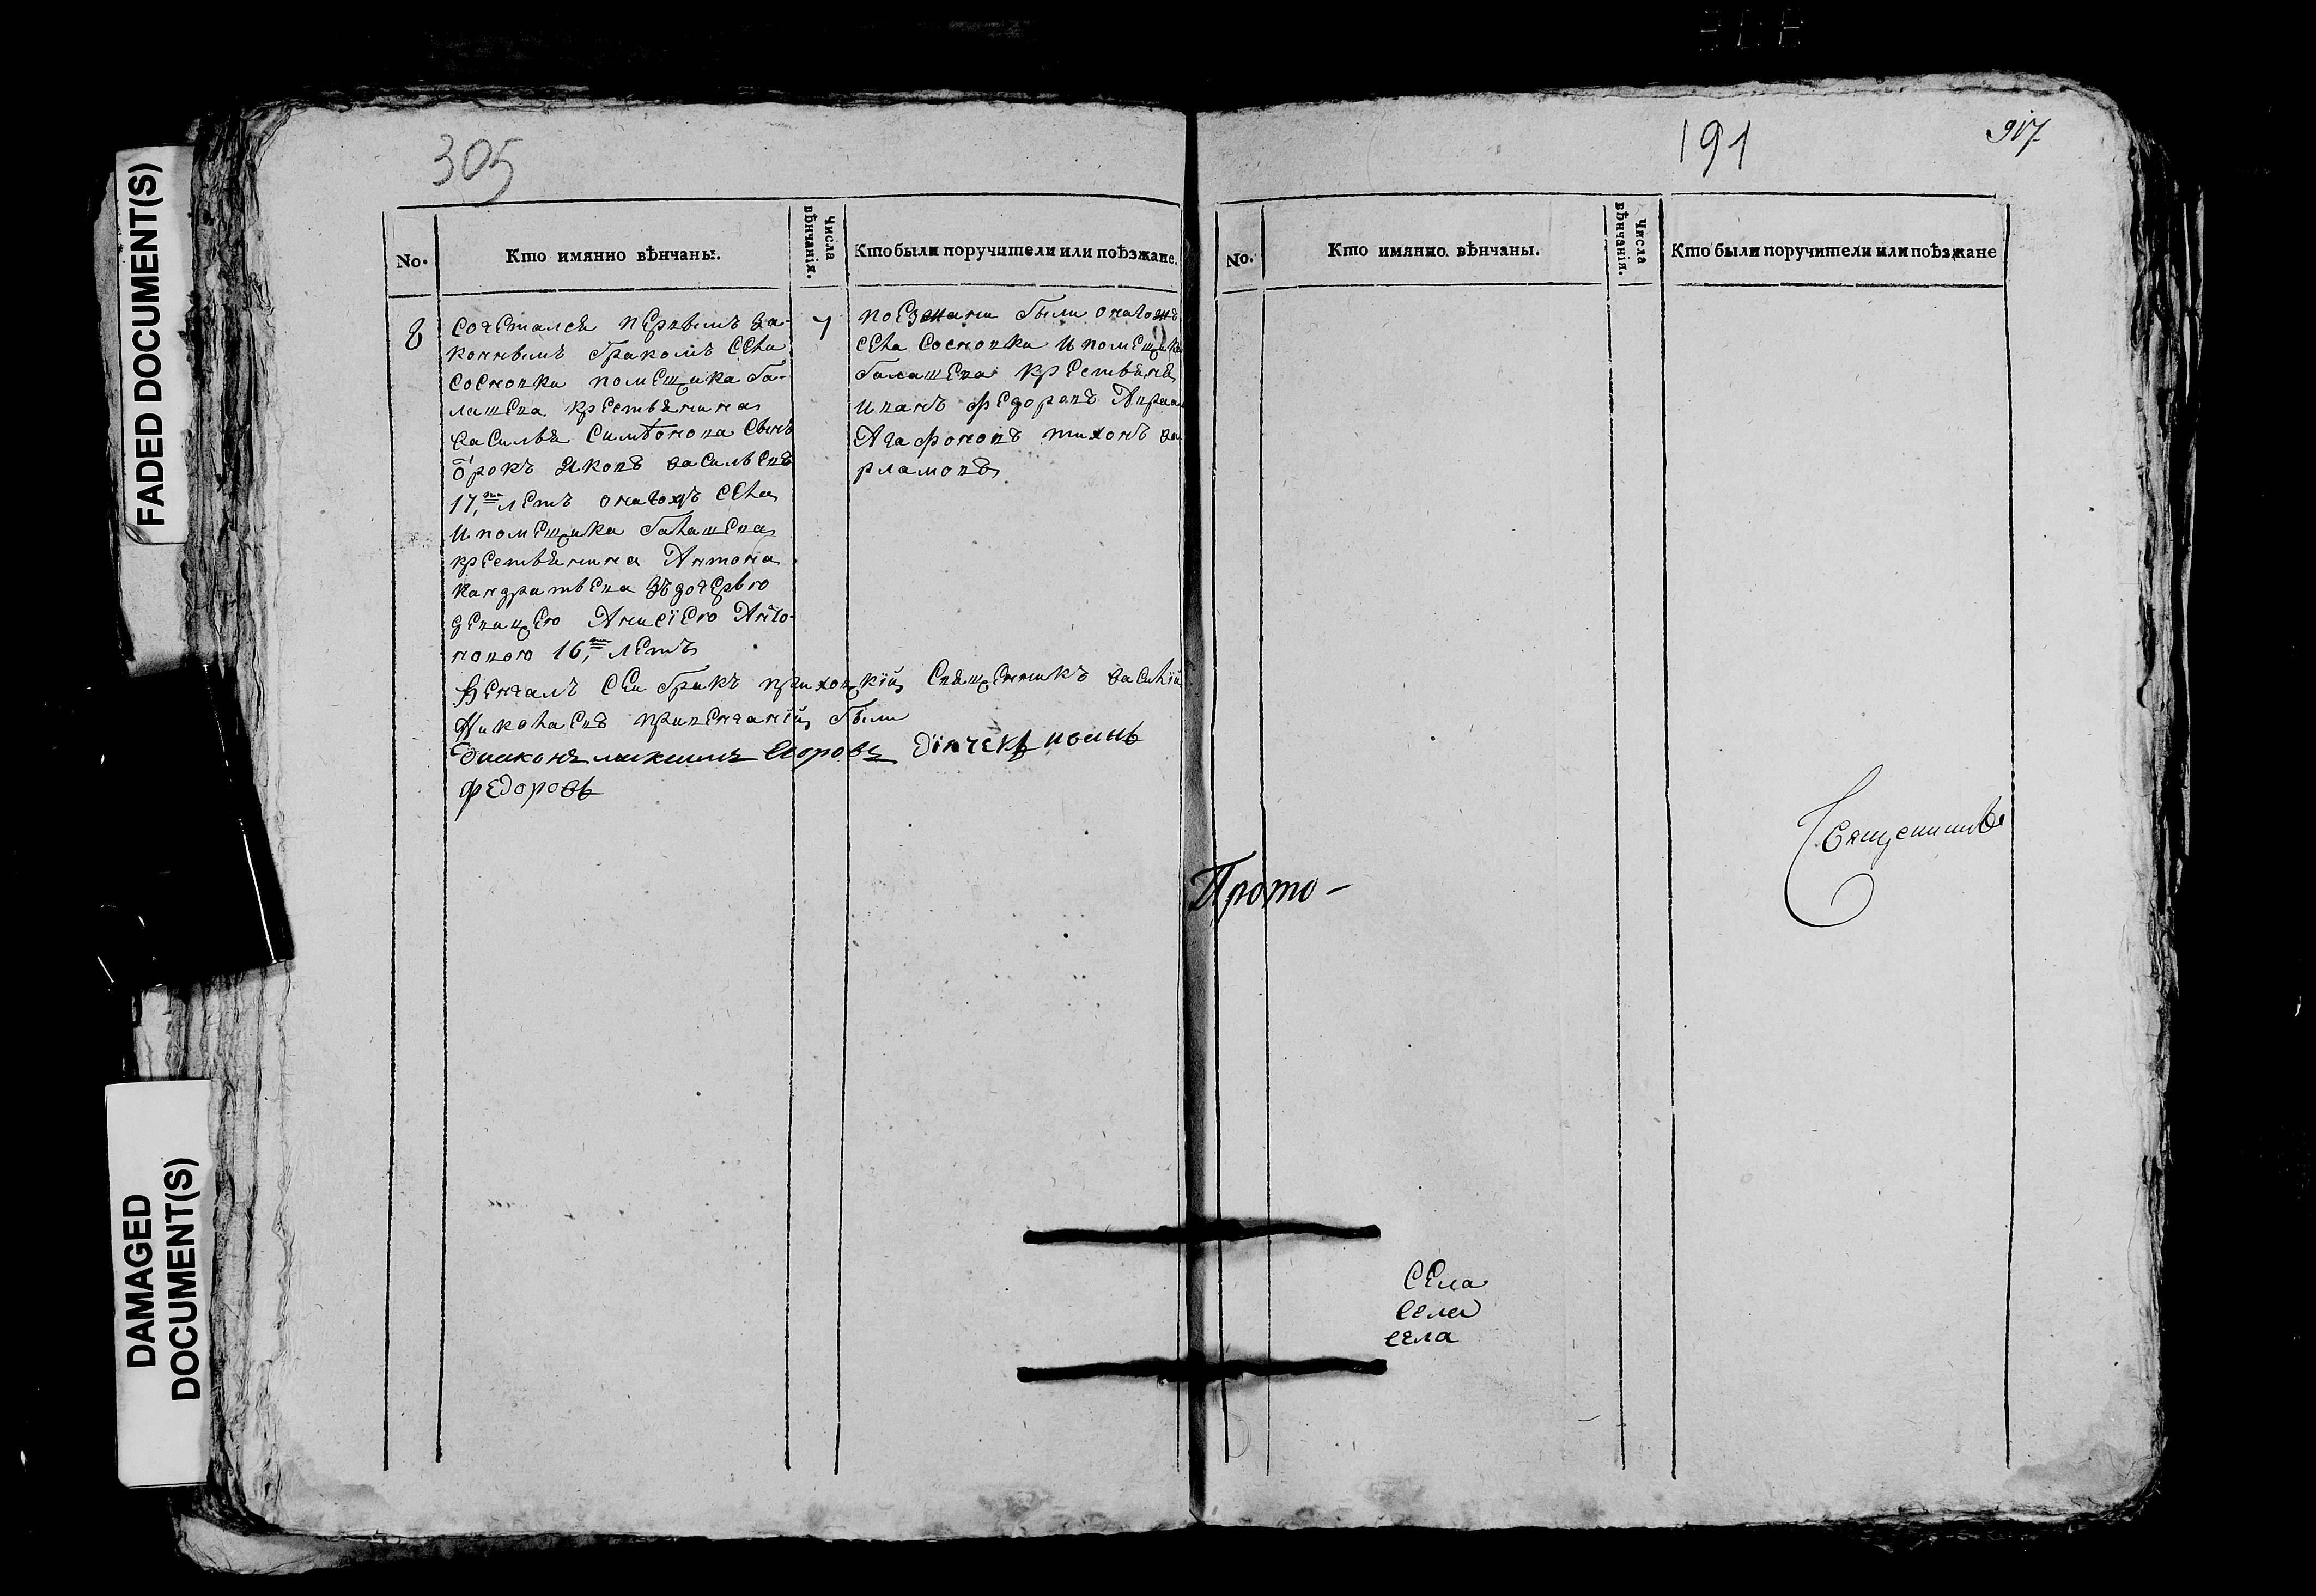 FADED DOCUMENT(S)
DAMAGED
DOCUMENT(S)
305
No.
Кто имянно вѣнчаны.
Числа
вѣнчанія.
Кто были поручители или поѣзжане.
8
сочетался первымъ за-
коннымъ бракомъ села
сосновки помещика ба-
лашева крестьянина
василья симѣонова сынъ
отрокъ яковъ васильевъ
17,ти летъ онагожъ села
и помещика балашева
крестьянина Антона
кандратьева зъ дочерью
девицею Анисіею Анто-
новою 16,ти летъ
7
поезжани были онагожъ
села сосновки и помещика
балашева крестьяня
иванъ федоровъ
Агафоновъ тихонъ ва
рламовъ
Венчалъ сеи бракъ приходкій священникъ василій
Николаевъ привенчаніи были
Диаконъ максимъ Егоровъ дїячекъ иванъ
федоровъ
191
917
No.
Кто имянно вѣнчаны.
Числа
вѣнчанія.
Кто были поручители или поѣзжане
Священникъ
Прото-
села
села
села